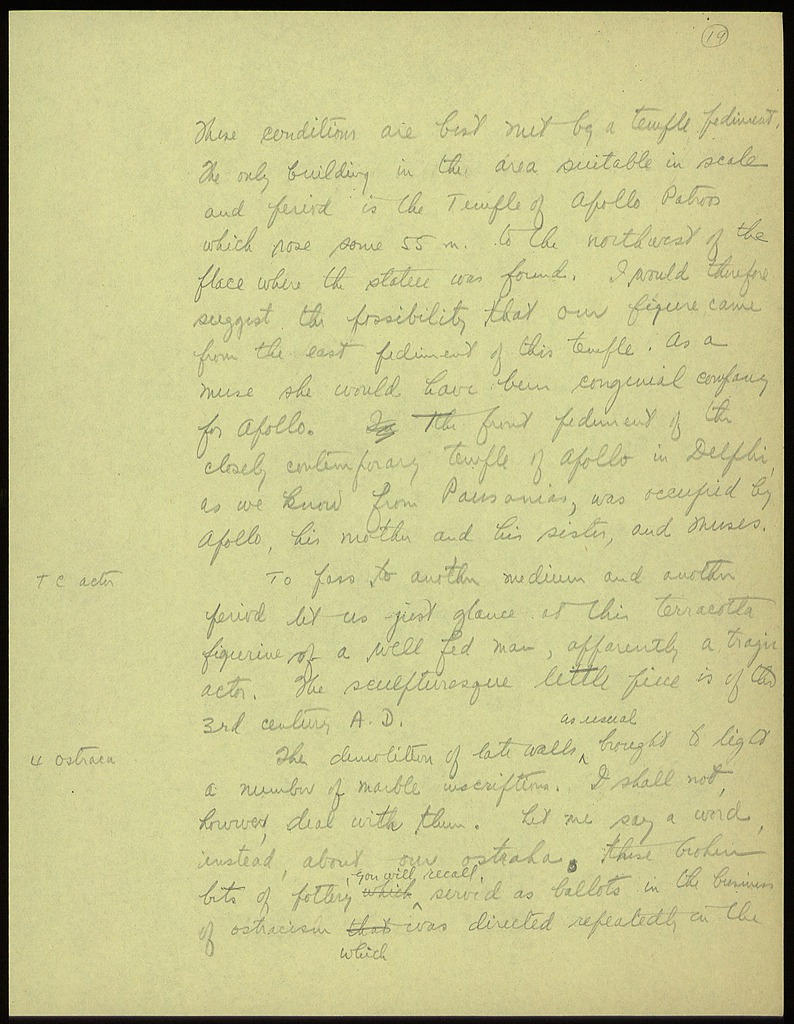 19
These conditions are best met by a temple pediment.
The only building in the area suitable in scale
and period is the Temple of Apollo Patroos
which rose some 55 m. to the northwest of the
place where the statue was found. I would therefore
suggest the possibility that our figure came
from the east pediment of this temple. As a
muse she would have been congenial company
for Apollo. The front pediment of the
closely contemporary temple of Apollo in Delphi,
as we know from Pausanias, was occupied by
Apollo, his mother and his sister, and Muses.
T C actor
To pass to another medium and another
period let us just glance at this terracotta
figurine of a well fed man, apparently a tragic
actor. The sculpturesque little piece is of the
3rd century A.D.
as usual
4 Ostraca
The demolition of late walls, brought to light
a number of marble inscriptions. I shall not,
however, deal with them. Let me say a word,
instead, about our ostraka. These broken
, you will recall,
bits of pottery which served as ballots in the business
of ostracism that was directed repeatedly in the
which